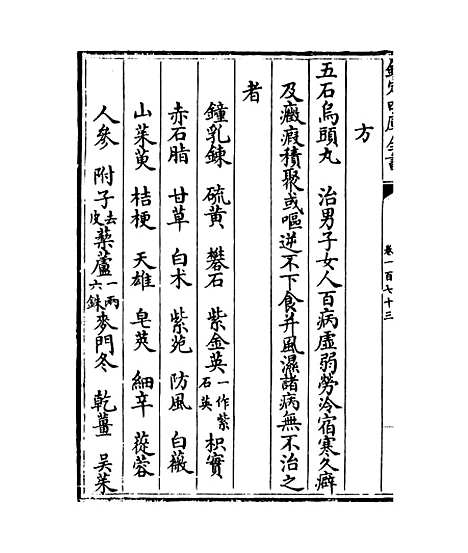 欽定四庫全書
卷一百七十三
方
五石烏頭丸 治男子女人百病虛弱勞冷宿寒久癖
及癥瘕積聚或嘔逆不下食并風濕諸病無不治之
者
鐘乳鍊 硫黄 礬石 紫金英一作紫石英 枳實
赤石脂 甘草 白朮 紫菀 防風 白薇
山茱萸 桔梗 天雄 皂莢 細辛 蓯蓉
人參 附子去皮 藜蘆一兩六銖 麥門冬 乾薑 吳茱